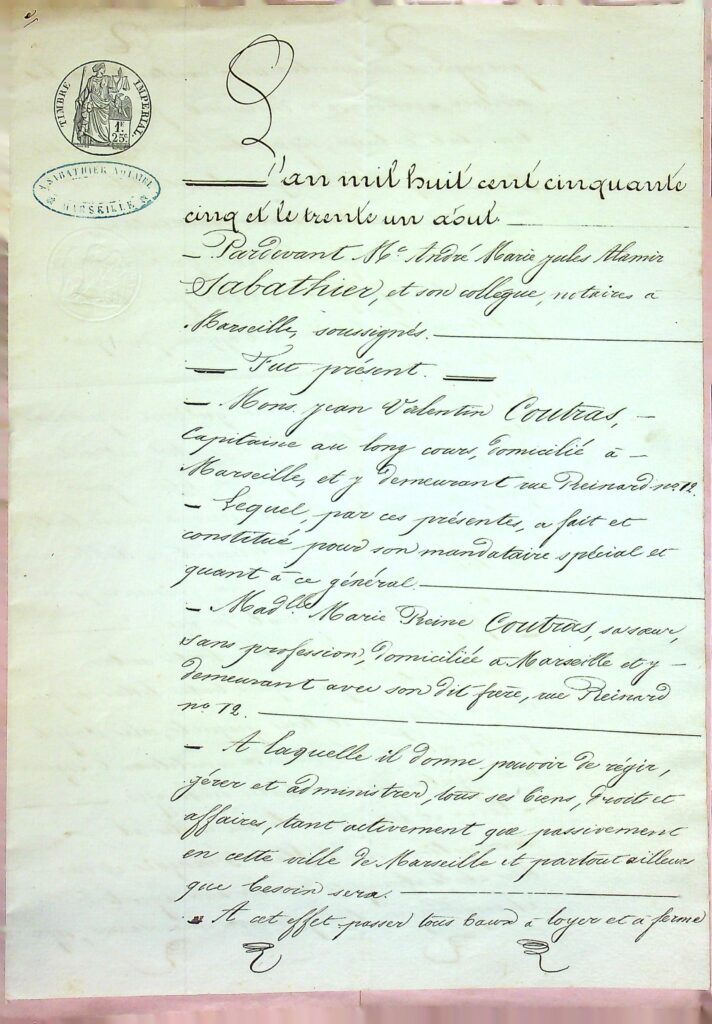 TIMBRE IMPERIAL
1F.
25c.
A SABATHIER NOTAIRE
MARSEILLE
L'an mil huit cent cinquante
cinq et le trente un aout.
_ Pardevant Me. André Marie Jules Alamir
Sabathier, et son collègue, notaires à
Marseille, soussignés.
Fut présent.
_ Mons. Jean Valentin Coutras, _
Capitaine au long cours, domicilié à _
Marseille, et y demeurant rue Reinard no. 12.
_ Lequel, par ces présentes, a fait et
constitué pour son mandataire spécial et
quant à ce général.
_ Madlle. Marie Reine Coutras, sa sœur,
sans profession, domiciliée à Marseille et y _
demeurant avec son dit frère, rue Reinard
no. 12.
_ A laquelle il donne pouvoir de régir,
gérer et administrer, tous ses biens, droits et
affaires, tant activement que passivement
en cette ville de Marseille et partout ailleurs
que besoin sera.
_ A cet effet passer tous baux à loyer et à ferme